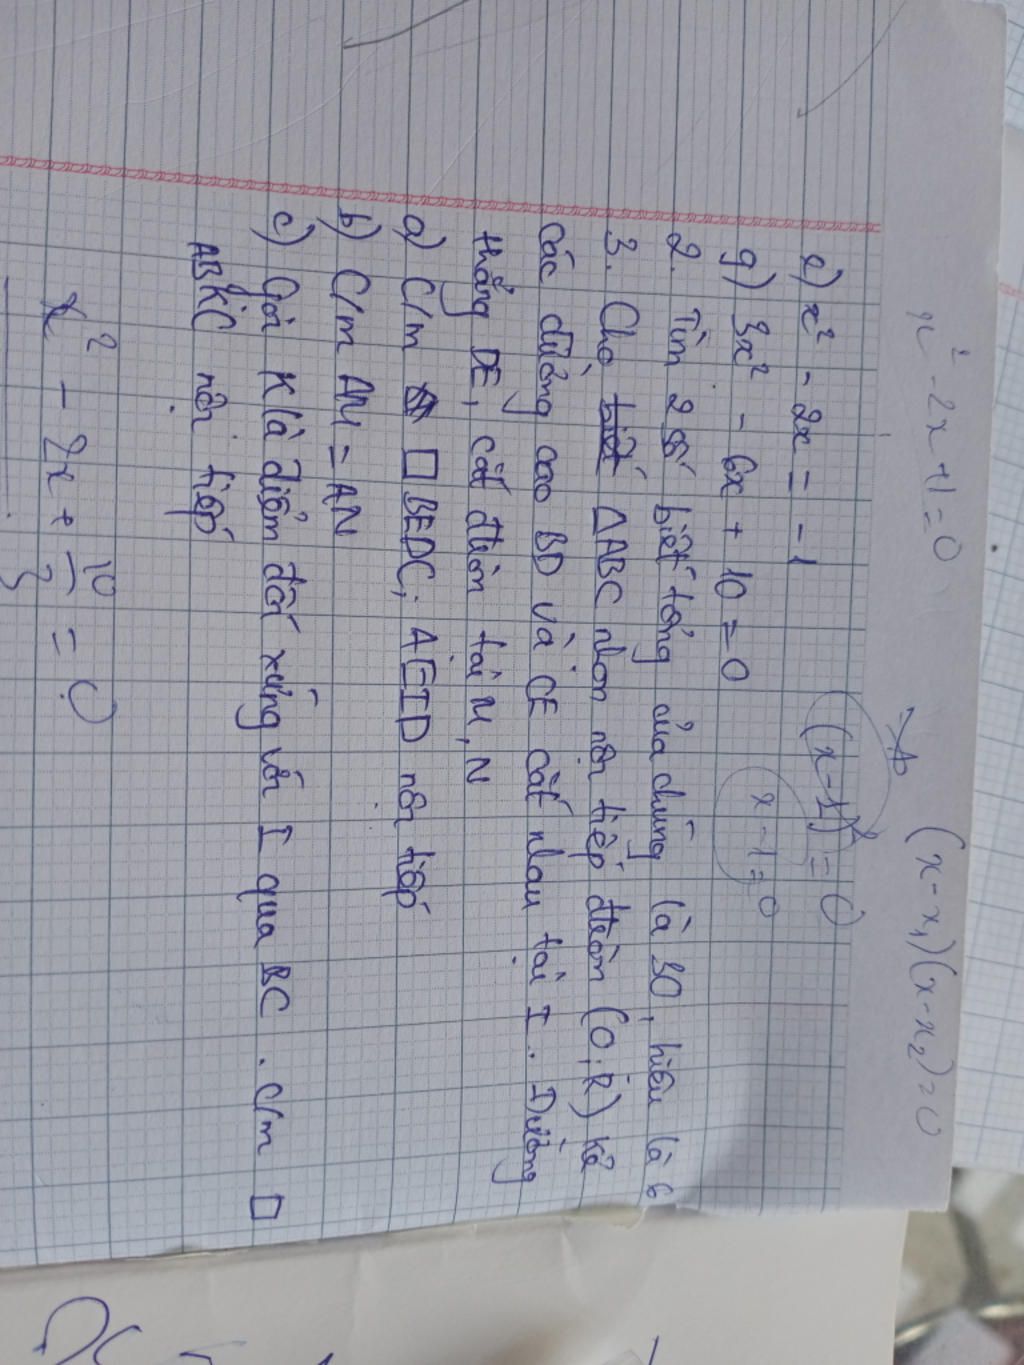 x² - 2x + 1 = 0 (x - x₁)(x - x₂) = 0
e) x² - 2x = -1 (x - 1)² = 0
g) 3x² - 6x + 10 = 0 x - 1 = 0
2. Tìm 2 số biết tổng của chúng là 30, hiệu là 6
3. Cho ΔABC nhọn nội tiếp đtròn (O; R) kẻ
các đường cao BD và CE cắt nhau tại I. Đường
thẳng DE, cắt đtròn tại M, N
a) C/m □BEDC; AEID nội tiếp
b) C/m AM = AN
c) Gọi K là điểm đối xứng với I qua BC. C/m □
ABKC nội tiếp
x² - 2x + 10/3 = 0